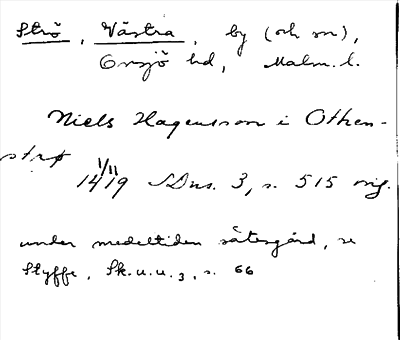 Strö, Västra, by (och sn),
Onsjö hd, Malm. l.
Niels Hagensson i Othen-
strø
1/11
1419 SDns. 3, s. 515 orig.
under medeltiden sätesgård, se
Styffe, Sk.u.u.3, s. 66